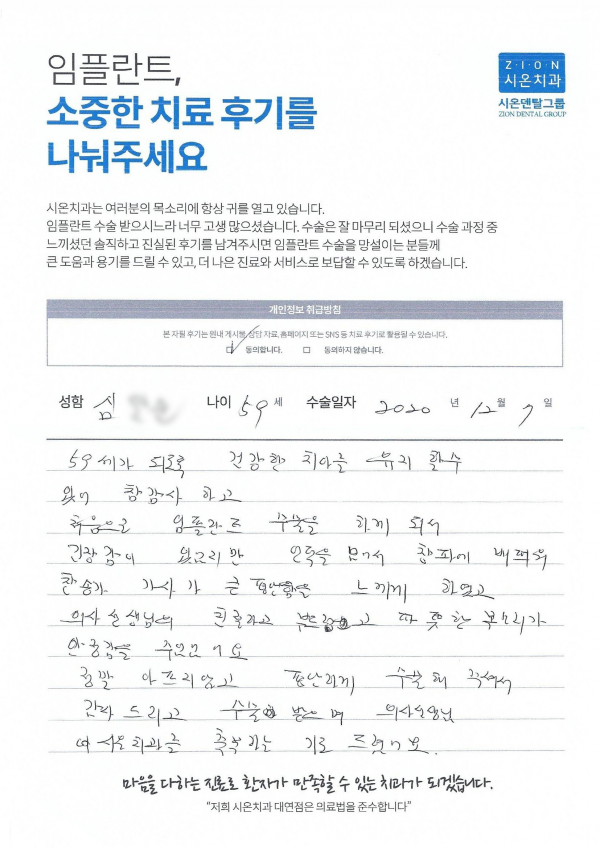 임플란트,
소중한 치료 후기를
나눠주세요
Z·I·O·N
시온치과
시온덴탈그룹
ZION DENTAL GROUP
시온치과는 여러분의 목소리에 항상 귀를 열고 있습니다.
임플란트 수술 받으시느라 너무 고생 많으셨습니다. 수술은 잘 마무리 되셨으니 수술 과정 중
느끼셨던 솔직하고 진실된 후기를 남겨주시면 임플란트 수술을 망설이는 분들께
큰 도움과 용기를 드릴 수 있고, 더 나은 진료와 서비스로 보답할 수 있도록 하겠습니다.
개인정보 취급방침
본 자필 후기는 원내 게시물, 상담 자료, 홈페이지 또는 SNS 등 치료 후기로 활용될 수 있습니다.
동의합니다. 동의하지 않습니다.
성함 심 나이 59 세 수술일자 2020 년 12 월 7 일
59세가 되도록 건강한 치아를 유지 할수
있어 참감사 하고
처음으로 임플란트 수술을 하게 되서
긴장감이 있고 만
찬송가 가사가 큰 평안함을 느끼게 하였고
의사선생님의 친절하고 부드럽고 따뜻한 목소리가
안정감을 주었어요
정말 아프지않고 편안하게 수술해 주셔서
감사 드리고 수술 받으며 의사선생님
시온치과를 축복하는 기도 드렸어요.
마음을 다하는 진료로 환자가 만족할 수 있는 치과가 되겠습니다.
"저희 시온치과 대연점은 의료법을 준수합니다"